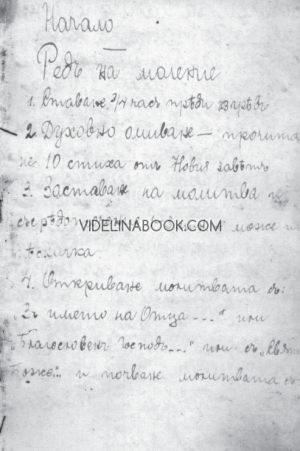 Начало
Редъ на моление
1. Ставане 3/4 часъ прѣди
2. Духовно омиване — прочита
не 10 стиха отъ Новия завѣтъ
3. Заставане на молитва
VIDELINABOOK.COM
може
пѣсничка
4. Откриване молитвата съ:
Въ името на Отца ...." или
„Благословенъ Господъ...." или съ
Боже.." и почване молитвата съ